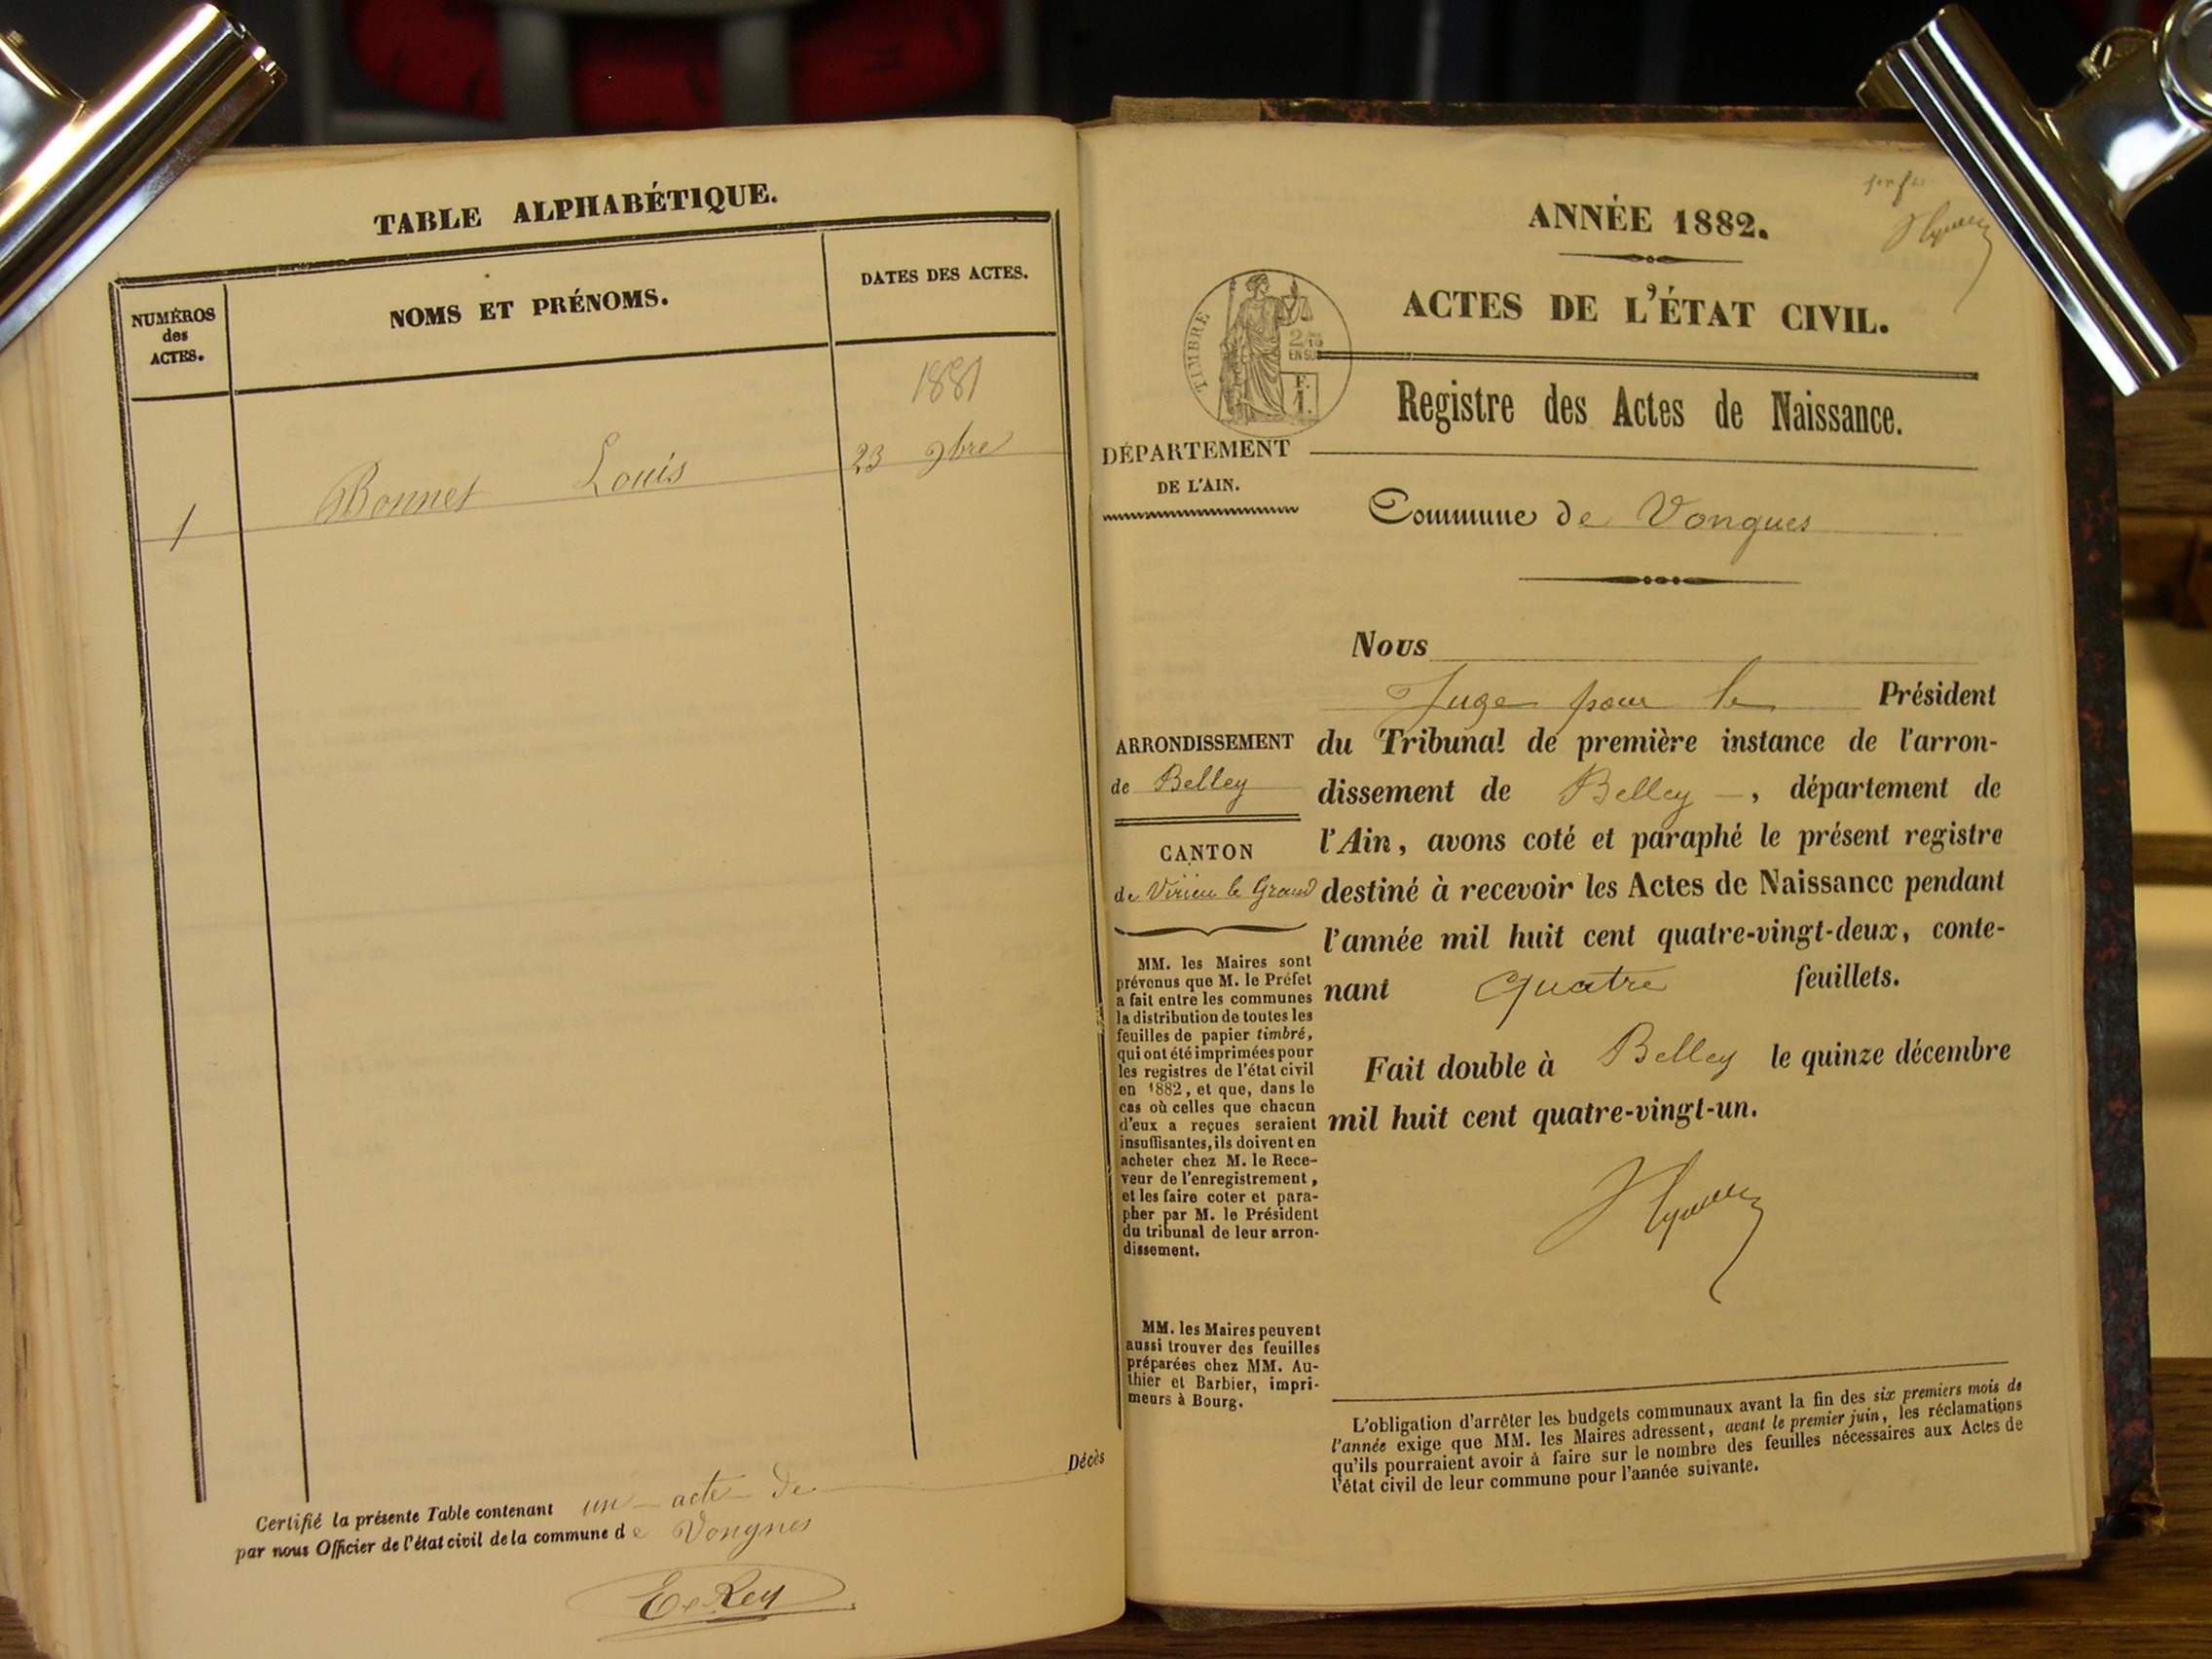 TABLE ALPHABÉTIQUE.
NUMÉROS
des
ACTES.
NOMS ET PRÉNOMS.
DATES DES ACTES.
1881
1 Bonnet Louis 23 9bre
Décès
Certifié la présente Table contenant un acte de
par nous Officier de l'état civil de la commune de Vongnes
E. Rey
ANNÉE 1882.
ACTES DE L'ÉTAT CIVIL.
TIMBRE
2/10
EN SUS
F.
1.
Registre des Actes de Naissance.
DÉPARTEMENT
DE L'AIN.
Commune de Vongnes
ARRONDISSEMENT
de Belley
CANTON
de Virieu le Grand
MM. les Maires sont
prévenus que M. le Préfet
a fait entre les communes
la distribution de toutes les
feuilles de papier timbré,
qui ont été imprimées pour
les registres de l'état civil
en 1882, et que, dans le
cas où celles que chacun
d'eux a reçues seraient
insuffisantes, ils doivent en
acheter chez M. le Rece-
veur de l'enregistrement,
et les faire coter et para-
pher par M. le Président
du tribunal de leur arron-
dissement.
MM. les Maires peuvent
aussi trouver des feuilles
préparées chez MM. Au-
thier et Barbier, impri-
meurs à Bourg.
Nous
Juge pour le Président
du Tribunal de première instance de l'arron-
dissement de Belley —, département de
l'Ain, avons coté et paraphé le présent registre
destiné à recevoir les Actes de Naissance pendant
l'année mil huit cent quatre-vingt-deux, conte-
nant quatre feuillets.
Fait double à Belley le quinze décembre
mil huit cent quatre-vingt-un.
L'obligation d'arrêter les budgets communaux avant la fin des six premiers mois de
l'année exige que MM. les Maires adressent, avant le premier juin, les réclamations
qu'ils pourraient avoir à faire sur le nombre des feuilles nécessaires aux Actes de
l'état civil de leur commune pour l'année suivante.